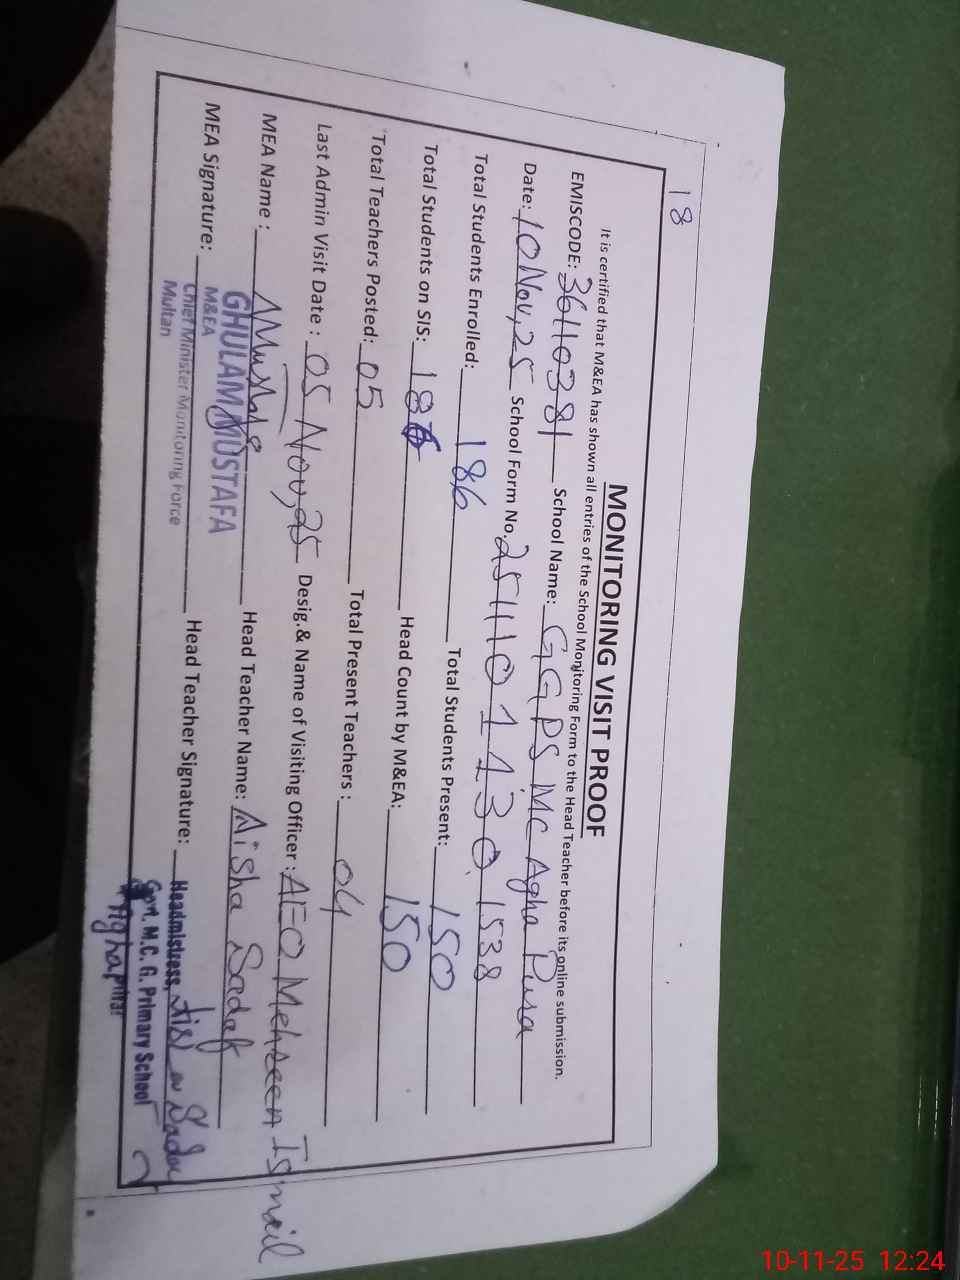 18
MONITORING VISIT PROOF
It is certified that M&EA has shown all entries of the School Monitoring Form to the Head Teacher before its online submission.
EMISCODE: 36110381 School Name: GGPS MC Agha Pura
Date: 10 Nov, 25 School Form No. 251110114301538
Total Students Enrolled: 186 Total Students Present: 150
Total Students on SIS: 186 Head Count by M&EA: 150
Total Teachers Posted: 05 Total Present Teachers : 04
Last Admin Visit Date : 05 Nov, 25 Desig.& Name of Visiting Officer : AEO Mehreen Ismail
MEA Name : Head Teacher Name: Aisha Sadaf
GHULAM MUSTAFA
MEA Signature: M&EA Head Teacher Signature:
Chief Minister Monitoring Force
Multan
Headmistress,
Govt. M.C. G. Primary School
Aghapura
10-11-25 12:24